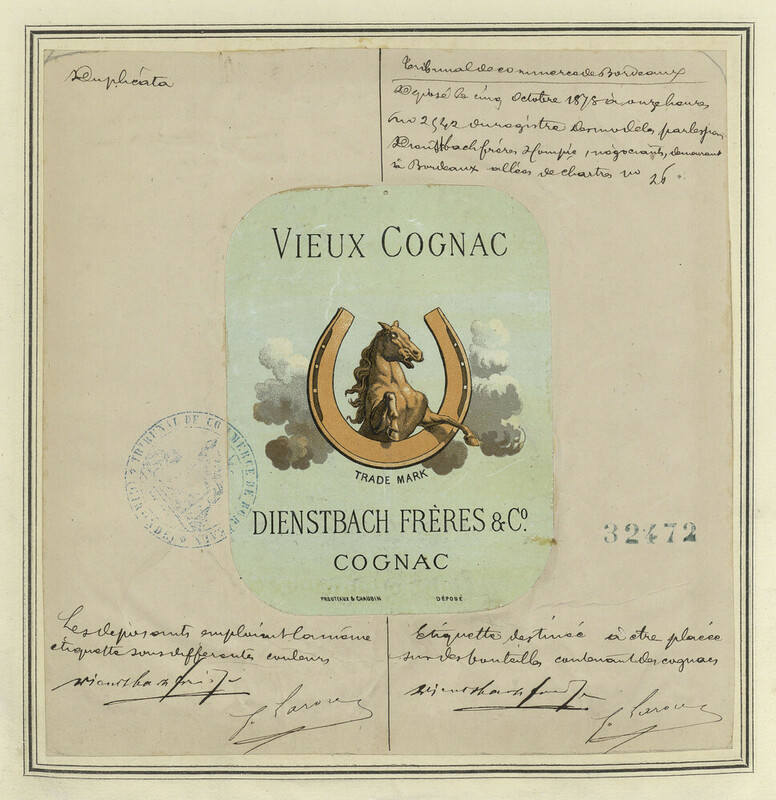 Duplicata
Tribunal de commerce de Bordeaux
Déposé le cinq Octobre 1878 à onze heures
no 2542 du registre des modèles, par les sieurs
Dienstbach frères & Compie, négociants, demeurant
à Bordeaux allées de chartres no 26.
VIEUX COGNAC
TRADE MARK
DIENSTBACH FRÈRES & Cº.
COGNAC
PROUTEAUX & CHAUBIN DÉPOSÉ
TRIBUNAL DE COMMERCE DE BORDEAUX
32472
Les déposants emploieront la même
étiquette sous différentes couleurs
Dienstbach frères
Etiquette destinée à être placée
sur des bouteilles contenant des cognacs
Dienstbach frères